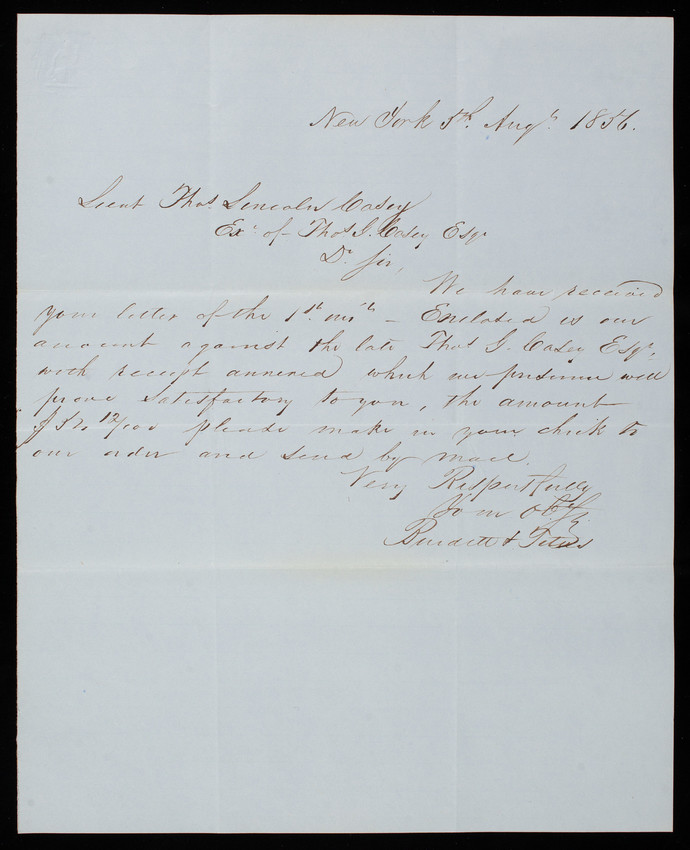 New York 5th. Augt. 1856.
Lieut Thos Lincoln Casey
Exr. of Thos G. Casey Esqr
Dr. Sir,
We have received
your letter of the 1st. inst. – Enclosed is our
account against the late Thos G. Casey Esqr,
with receipt annexed which we presume will
prove satisfactory to you, the amount
12/100 please make in your check to
our order and send by mail.
Very Respectfully
Your obt
Burdett & Titus